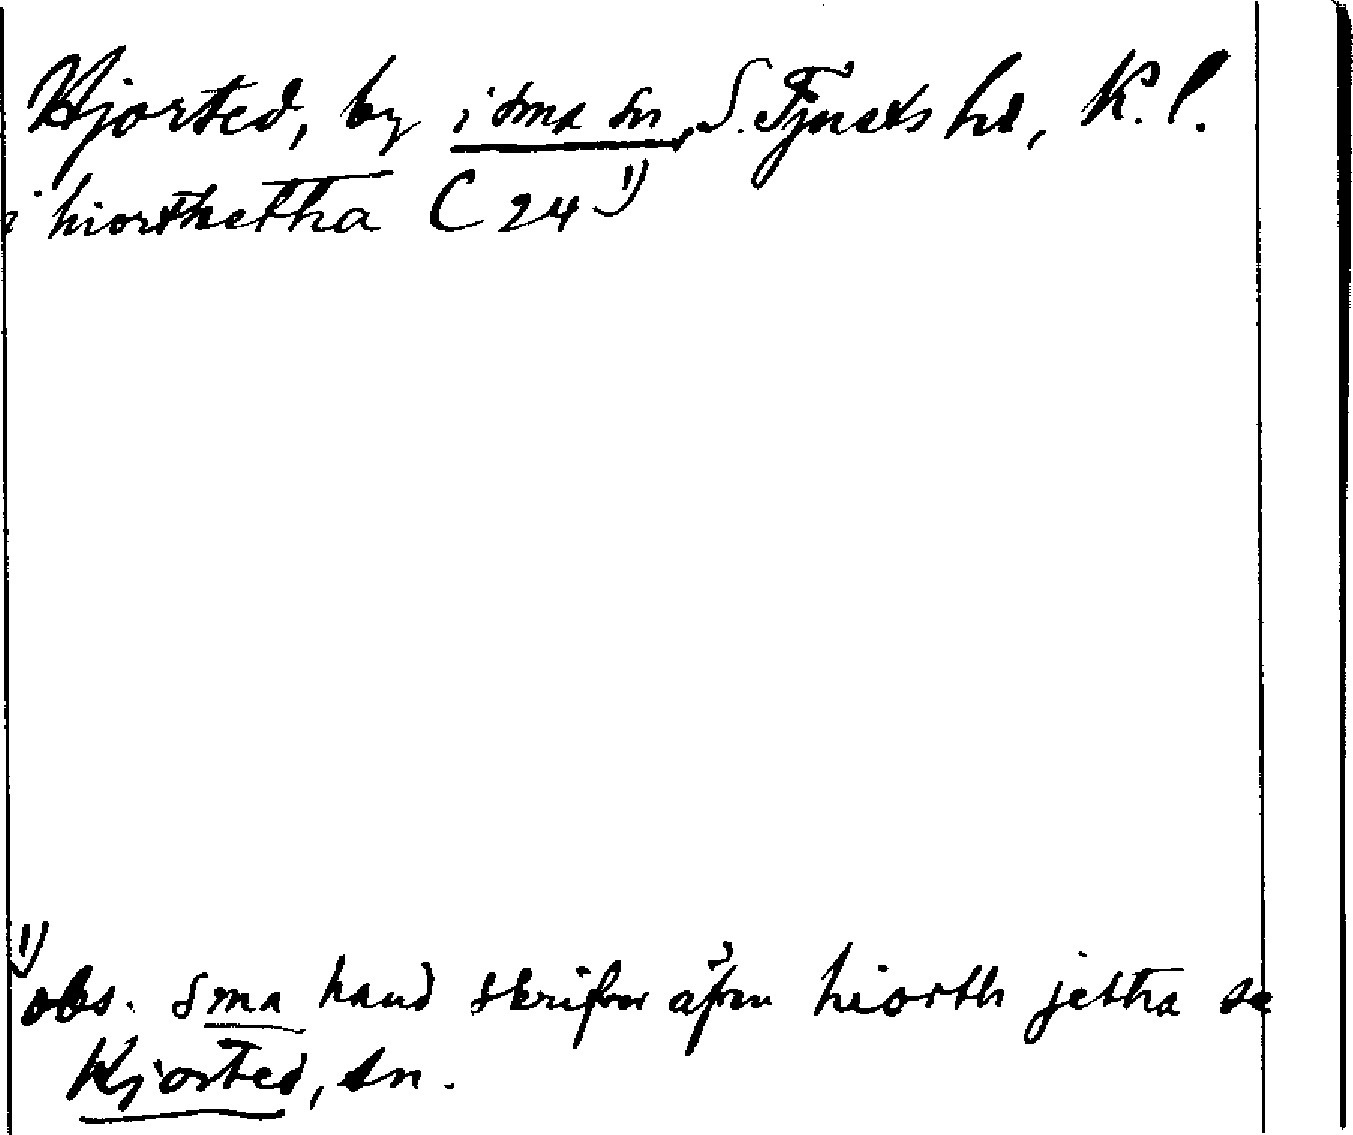 Hjorted, by i sma sn, S. Tjusts hd, K. l.
i hiorthetha C 24 1)
1) obs. sma hand skrifver äfven hiorth jetha se
Hjorted, sn.